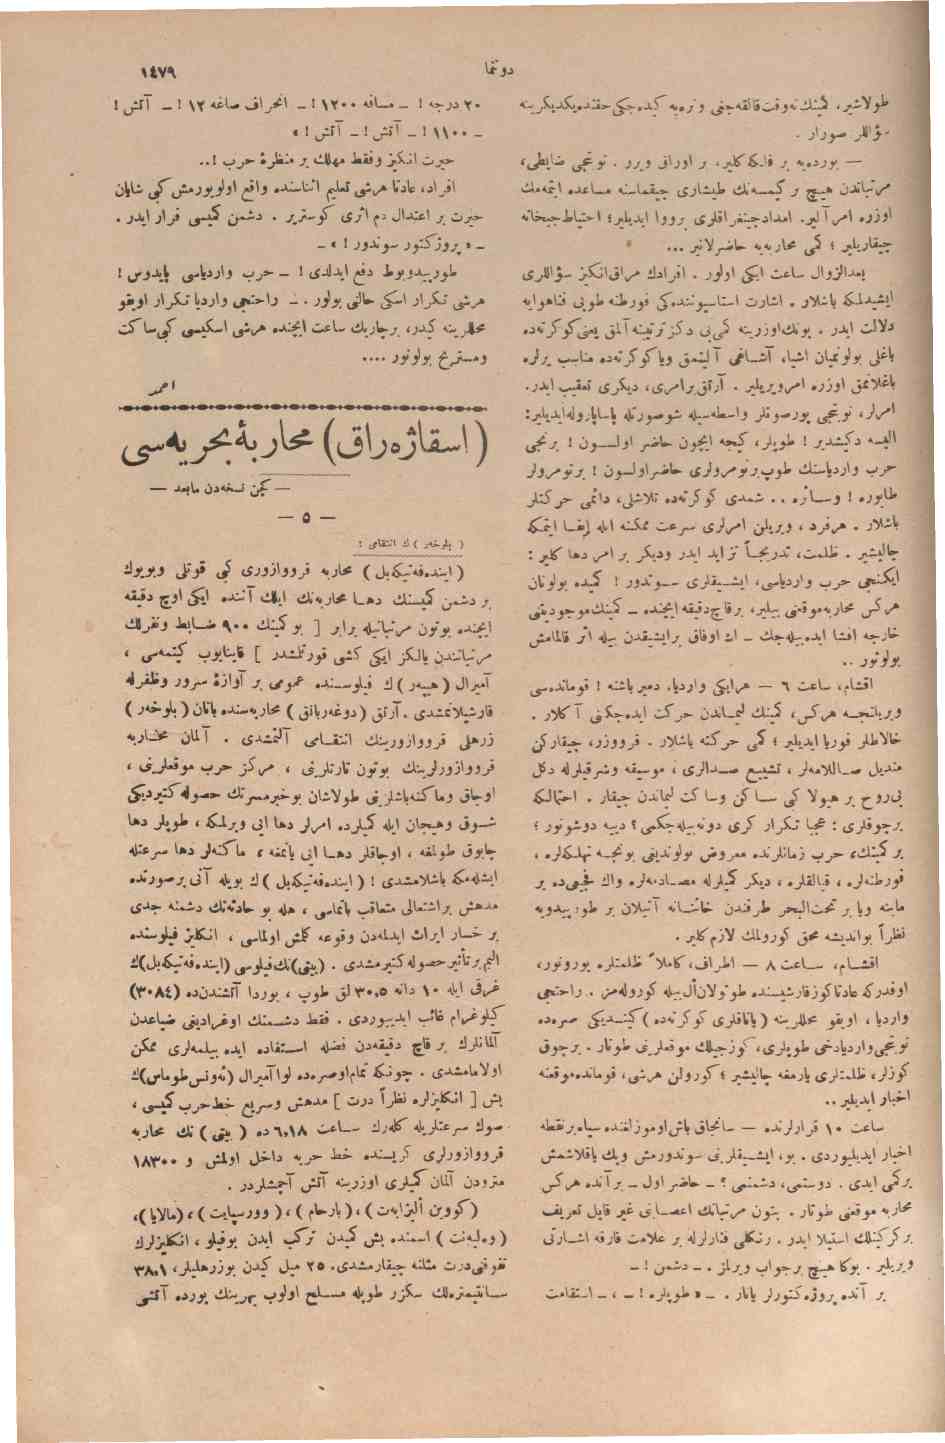 دوننما
١٤٧٩
طولاشیر، كمینك نه‌وقت قالقه‌جغی و نره‌یه كیده‌جكی حقنده یكدیكرینه
سؤاللر صورار .
— بورده‌یه بر فلكه كلیر، بر اوراق ویرر . نوبتجی ضابطی،
مرتباتدن هیچ بر كیمسه‌نك طیشاری چیقماسنه مساعده ایتمه‌مك
اوزره امر آلیر. امدادجیغراقلری برووا ایدیلیر؛ احتیاط جبخانه
چیقاریلیر ؛ كمی محاربه‌یه حاضرلانیر ...
بعدالزوال ساعت ایكی اولور . افرادك مراق انكیز سؤاللری
ایشیدلمكه باشلار . اشارت استاسیوننده‌كی فورطنه طوپی فناهوایه
دلالت ایدر . بونك اوزرینه كمی‌یی دكز ترتیبنه آلمق یعنی كوكرته‌ده
باغلی بولونمیان اشیاء آشاغی آلینمق ویا كوكرته‌ده مناسب یرلره
باغلانمق اوزره امر ویریلیر . آرتق بر امری، دیكری تعقیب ایدر.
امرلر، نوبتجی بورصوتلر واسطه‌سیله شو صورتله پاساپاروله ایدیلیر:
البسه دكیشدیر ! طوپلر، كیجه ایچون حاضر اولسون ! برنجی
حرب واردیاسنك طوپ برنومرولری حاضر اولسون ! برنومرولر
طابوره ! وسائره .. شمدی كوكرته‌ده تلاشلی، دائمی حركتلر
باشلار . هر فرد، ویریلن امرلری سرعت ممكنه ایله ایفا ایتمكه
چالیشیر . ظلمت، تدریجاً تزاید ایدر ودیكر بر امر دها كلیر :
ایكنجی حرب واردیاسی، ایشیقلری سوندور ! كمیده بولونان
هركس محاربه موقعنی بیلیر، برقاچ دقیقه ایچنده — كمینك موجودیتنی
خارجه افشا ایده‌بیله‌جك — اك اوفاق بر ایشیقدن بیله اثر قالمامش
بولونور ..
اقشام، ساعت ٦ — هر ایكی واردیا، دمیر باشنه ! قومانده‌سی
ویریلنجه هركس، كمینك لیماندن حركت ایده‌جكنی آكلار .
خالاطلر فوریا ایدیلیر ؛ كمی حركته باشلار . قرووزر، چیقاركن
مندیل صاللامه‌لر ، تشییع صدالری ، موسیقه وشرقیلرله دكل
بی‌روح بر هیولا كبی ساكن وساكت لیماندن چیقار . احتمالكه
برچوقلری : عجبا تكرار كری دونه‌بیله‌جكمی ؟ دییه دوشونور ؛
بر كمینك، حرب زمانلرنده معروض بولوندیغی بونجه تهلكه‌لره ،
فورطنه‌لره ، قیالقلره ، دیكر كمیلرله مصادمه‌لره واك فجیعی‌ده بر
ماینه ویا بر تحت‌البحر طرفندن خائنانه آتیلان بر طورپیدویه
نظراً بو اندیشه محق كورولمك لازم كلیر .
اقشام، ساعت ٨ — اطراف، كاملاً ظلمتلره بورونور،
اوقدركه عادتا كوز قارشیسنده طوتولان أل بیله كوروله‌مز. راحتجی
واردیا ، اویقو محللرینه ( یاتاقلری كوكرته‌ده ) كیتدیكی صره‌ده
نوبتجی واردیاده‌خی طوپلری، كوزجیلك موقعلرنی طوتار . برچوق
كوزلر، ظلمتلری یارمغه چالیشیر ؛ كورولن هرشی، قومانده موقعنه
اخبار ایدیلیر ..
ساعت ١٠ قرارلرنده — سانجاق باش اوموزلغنده سیاه بر نقطه
اخبار ایدیلیوردی . بو، ایشیقلرنی سوندورمش وپك یاقلاشمش
بر كمی ایدی . دوستمی، دشمنمی ؟ — حاضر اول — بر آنده هركس
محاربه موقعنی طوتار . بتون مرتباتك اعصابنی غیر قابل تعریف
بر كركینلك استیلا ایدر . رنكلی فنارلرله بر علامت فارقه اشارتی
ویریلیر . بوكا هیچ بر جواب ویرلمز . — دشمن ! —
بر آنده پروژه‌كتورلر یانار . — « طوپلره ! — ، — استقامت
٢٠ درجه ! — مسافه ١٢٠٠ ! — انحراف صاغه ١٢ ! — آتش !
— ١١٠٠ ! — آتش ! — آتش ! »
حیرت انكیز وفقط مهلك بر منظرهٔ حرب !..
افراد، عادتا هرشی تعلیم اثناسنده واقع اولویورمش كبی شایان
حیرت بر اعتدال دم اثری كوستریر . دشمن كمیسی فرار ایدر .
— « پروژكتور سوندور ! » —
طورپیدوبوط دفع ایدلدی ! — حرب واردیاسی پایدوس !
هرشی تكرار اسكی حالنی بولور . — راحتجی واردیا تكرار اویقو
محللرینه كیدر، برچاریك ساعت ایچنده هرشی اسكیسی كبی ساكت
ومستریح بولونور ....
احمد
( اسقاژه‌راق ) محاربهٔ بحریه‌سی
— كچن نسخه‌دن مابعد —
— ٥ —
( بلوخه‌ر ) ك انتقامی :
( اینده‌فه‌تیكه‌بل ) محاربه قرووازوری كبی قوتلی وبویوك
بر دشمن كمیسنك دها محاربه‌نك ایلك آننده ایكی اوچ دقیقه
ایچنده بوتون مرتباتیله برابر [ بو كمینك ٩٠٠ ضابط ونفرلك
مرتباتندن یالكز ایكی كشی قورتلشدر ] قاینایوب كیتمه‌سی ،
آمیرال ( هیپه‌ر ) ك فیلوسنده عمومی بر آوازهٔ سرور وظفرله
قارشیلانمشدی . آرتق ( دوغه‌ربانق ) محاربه‌سنده باتان ( بلوخه‌ر )
زرهلی قرووازورینك انتقامی آلنمشدی . آلمان محاربه
قرووازورلرینك بوتون تارتلرنی ، مركز حرب موقعلرنی ،
اوجاق وماكنه باشلرنی طولاشان بو خبر مسرتك حصوله كتیردیكی
شوق وهیجان ایله كمیلرده امرلر دها ایی ویرلمكه ، طوپلر دها
چابوق طولمغه ، اوجاقلر دها ایی یانمغه ، ماكنه‌لر دها سرعتله
ایشله‌مكه باشلامشدی ! ( اینده‌فه‌تیكه‌بل ) ك بویله آنی بر صورتده
مدهش بر اشتعالی متعاقب باتماسی ، هله بو حادثه‌نك دشمنه جدی
بر خسار ایراث ایدلمه‌دن وقوعه كلمش اولماسی ، انكلیز فیلوسنده
الیم بر تأثیر حصوله كتیرمشدی . (بیتی) نك فیلوسی (اینده‌فه‌تیكه‌بل) ك
غرقی ایله ١٠ دانه ٣٠,٥ لق طوپ ، بوردا آتشندن‌ده (٣٠٨٤)
كیلوغرام غائب ایدییوردی . فقط دشمنك اوغرادیغی ضیاعدن
آلمانلرك بر قاچ دقیقه‌دن فضله استفاده ایده بیلمه‌لری ممكن
اولامامشدی . چونكه تمام اوصره‌ده لوا آمیرال (ئه‌ونس طوماس) ك
بش [ انكلیزلره نظراً درت ] مدهش وسریع خط حرب كمیسی ،
صوك سرعتلریله كله‌رك ساعت ٦,١٨ ده ( بیتی ) نك محاربه
قرووازورلری كریسنده خط حربه داخل اولمش و ١٨٣٠٠
مترودن آلمان كمیلری اوزرینه آتش آچمشلردر .
(كووین ألیزابه‌ت) ، ( بارحام ) ، ( وورسپایت ) ، (مالایا)،
( وه‌لیه‌نت ) اسمنده بش كمیدن تركب ایدن بو فیلو ، انكلیزلرك
تفوقنی درت مثلنه چیقارمشدی. ٢٥ میل كیدن بو زرهلیلر، ٣٨,١
سانتیمتره‌لك سكزر طوپله مسلح اولوب بهرینك بورده آتشی